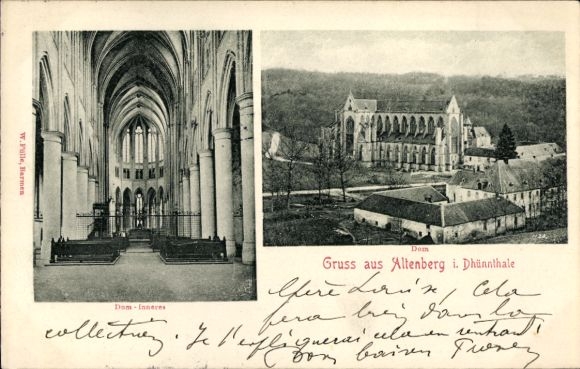 W. Fülle, Barmen
Dom - Inneres
Dom
Gruss aus Altenberg i. Dhünnthale
Chère Louise, Cela
fera bien dans la
collection. Je t'expliquerai cela en rentrant
Bons baisers